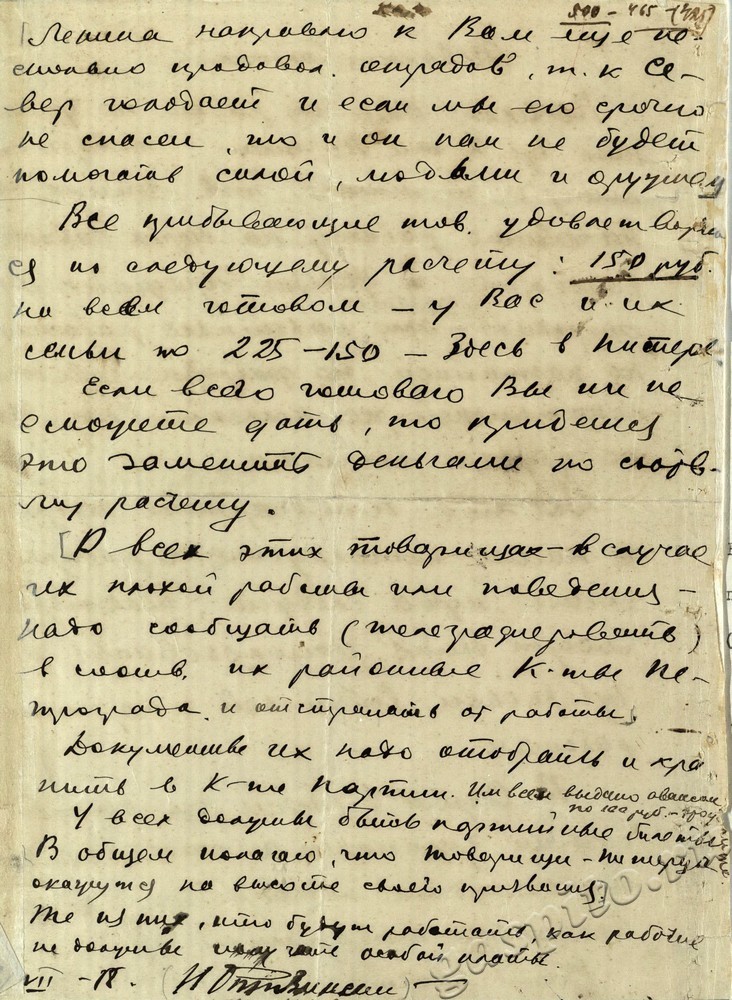 500 - 465 - (425)
[Ленина направлю к Вам еще не-
сколько продовол. отрядов, т. к Се-
вер голодает и если мы его срочно
не спасем, то и он нам не будет
помогать силой, людьми и оружием
Все прибывающие тов. удовлетворяют
ся по следующему расчету: 150 руб.
на всем готовом – у Вас и их
семьи по 225-150 – Здесь в Питере
Если всего готового Вы им не
сможете дать, то придется
это заменить деньгами по соотв-
му расчету.
[О всех этих товарищах – в случае
их плохой работы или поведения –
надо сообщать (телеграфировать)
в соотв. их районные К-ты Пе-
трограда и отстранять от работы.
Документы их надо отобрать и хра
нить в К-те Партии. Им всем выдано авансом
по 100 руб. -
У всех должны быть партийные билеты
В общем полагаю, что товарищи-питерцы
окажутся на высоте своего призвания.
Те из них, кто будут работать, как рабочие
не должны получать особой платы.
VII - 18.